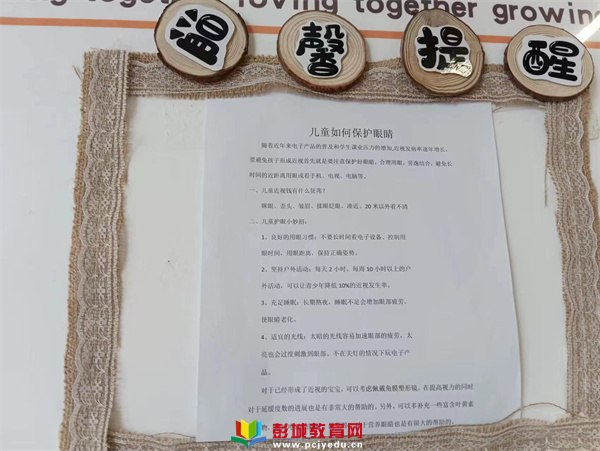 together loving together growin
温馨提醒
儿童如何保护眼睛
随着近年来电子产品的普及和学生课业压力的增加,近视发病率逐年增长,
要避免孩子形成近视首先就是要注意保护好眼睛,合理用眼,劳逸结合,避免长
时间的近距离用眼或看手机、电视、电脑等。
一、儿童近视眼有什么征兆?
眯眼、歪头、皱眉、揉眼眨眼、凑近、20米以外看不清
二、儿童护眼小妙招:
1、良好的用眼习惯:不要长时间看电子设备、控制用
眼时间,用眼距离,保持正确姿势。
2、坚持户外活动:每天2小时,每周10小时以上的户
外活动,可以让青少年降低10%的近视发生率。
3、充足睡眠:长期熬夜,睡眠不足会增加眼部疲劳,
使眼睛老化。
4、适宜的光线:太暗的光线容易加速眼部的疲劳,太
亮也会过度刺激到眼部、不在关灯的情况下玩电子产
品。
对于已经形成了近视的宝宝,可以考虑佩戴角膜塑形镜,在提高视力的同时
对于延缓度数的进展也是有非常大的帮助的。另外,可以多补充一些富含叶黄素
物,
于营养眼睛也是有很大的帮助的。
彭城教育网
www.pcjyedu.cn